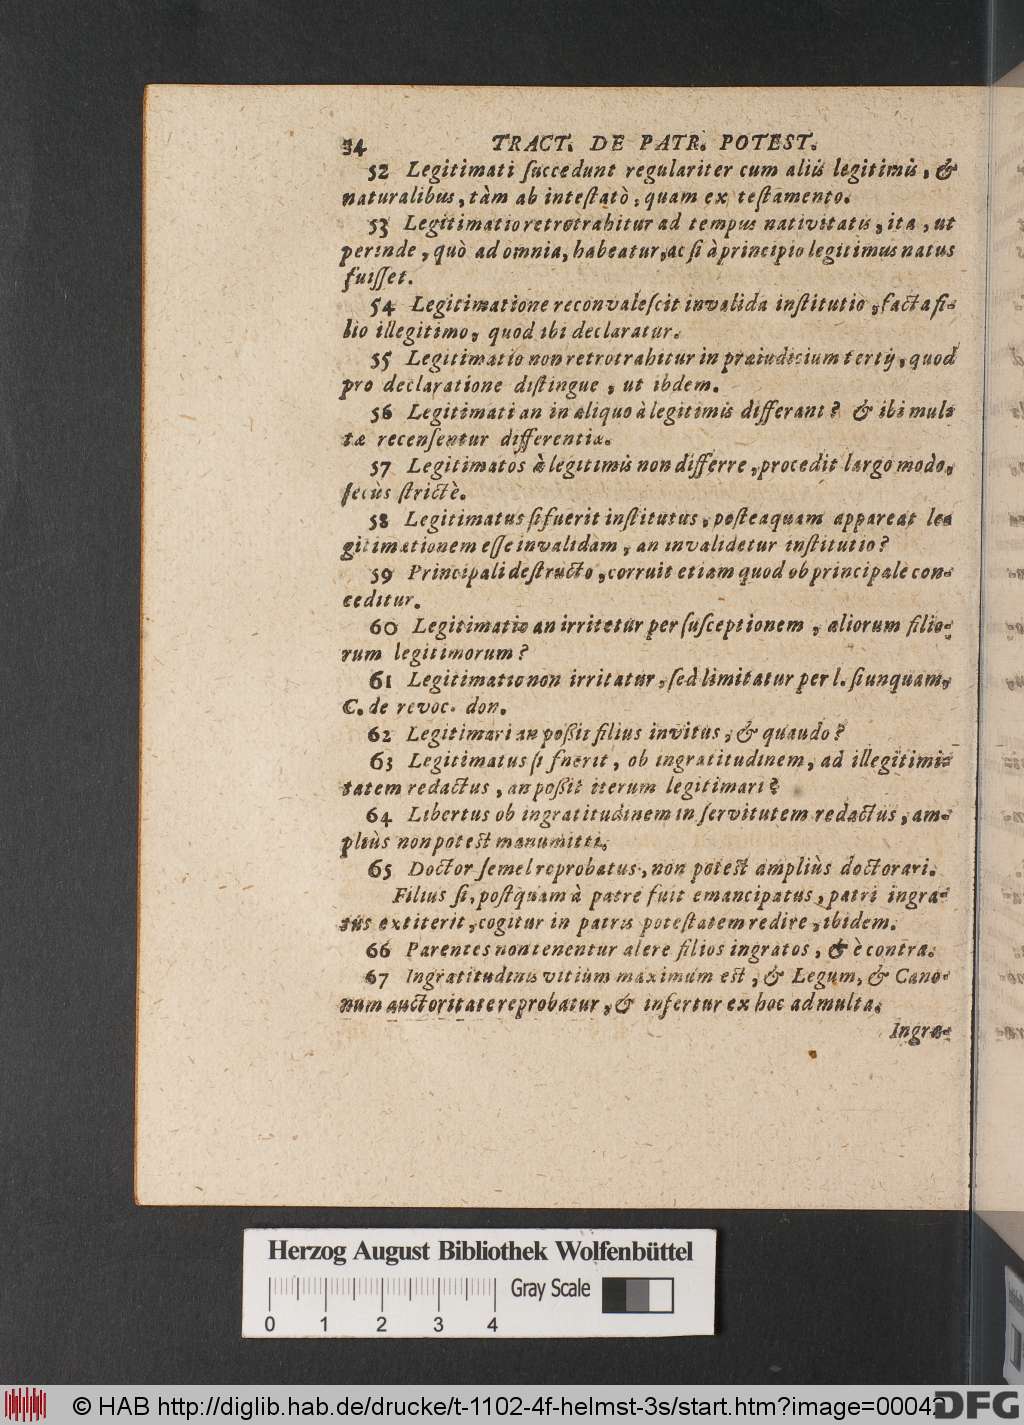 34 TRACT. DE PATR. POTEST.
52 Legitimati ſuccedunt regulariter cum aliis legitimis, &
naturalibus, tàm ab inteſtatò, quam ex teſtamento.
53 Legitimatio retrotrahitur ad tempus nativitatis, ita, ut
perinde, quò ad omnia, habeatur, ac ſi à principio legitimus natus
fuiſſet.
54 Legitimatione reconvaleſcit invalida inſtitutio, facta fi-
lio illegitimo, quod ibi declaratur.
55 Legitimatio non retrotrahitur in præiudicium tertij, quod
pro declaratione diſtingue, ut ibdem.
56 Legitimati an in aliquo à legitimis differant? & ibi mul-
tæ recenſentur differentiæ.
57 Legitimatos à legitimis non differre, procedit largo modo,
ſecùs ſtrictè.
58 Legitimatus ſi fuerit inſtitutus, poſteaquam appareat le-
gitimationem eſſe invalidam, an invalidetur inſtitutio?
59 Principali deſtructo, corruit etiam quod ob principale con-
ceditur.
60 Legitimatio an irritetur per ſuſceptionem, aliorum filio-
rum legitimorum?
61 Legitimatio non irritatur, ſed limitatur per l. ſi unquam,
C. de revoc. don.
62 Legitimari an poßit filius invitus, & quaudo?
63 Legitimatus ſi fuerit, ob ingratitudinem, ad illegitimi-
tatem redactus, an poßit iterum legitimari?
64 Libertus ob ingratitudinem in ſervitutem redactus, am-
pliùs non potest manumitti.
65 Doctor ſemel reprobatus, non potest ampliùs doctorari.
Filius ſi, poſtquam à patre fuit emancipatus, patri ingra-
tus extiterit, cogitur in patris poteſtatem redire, ibidem.
66 Parentes non tenentur alere filios ingratos, & è contra.
67 Ingratitudinis vitium maximum est, & Legum, & Cano-
num auctoritate reprobatur, & infertur ex hoc ad multa.
Ingra-
Herzog August Bibliothek Wolfenbüttel
Gray Scale
0 1 2 3 4
© HAB http://diglib.hab.de/drucke/t-1102-4f-helmst-3s/start.htm?image=00042
DFG